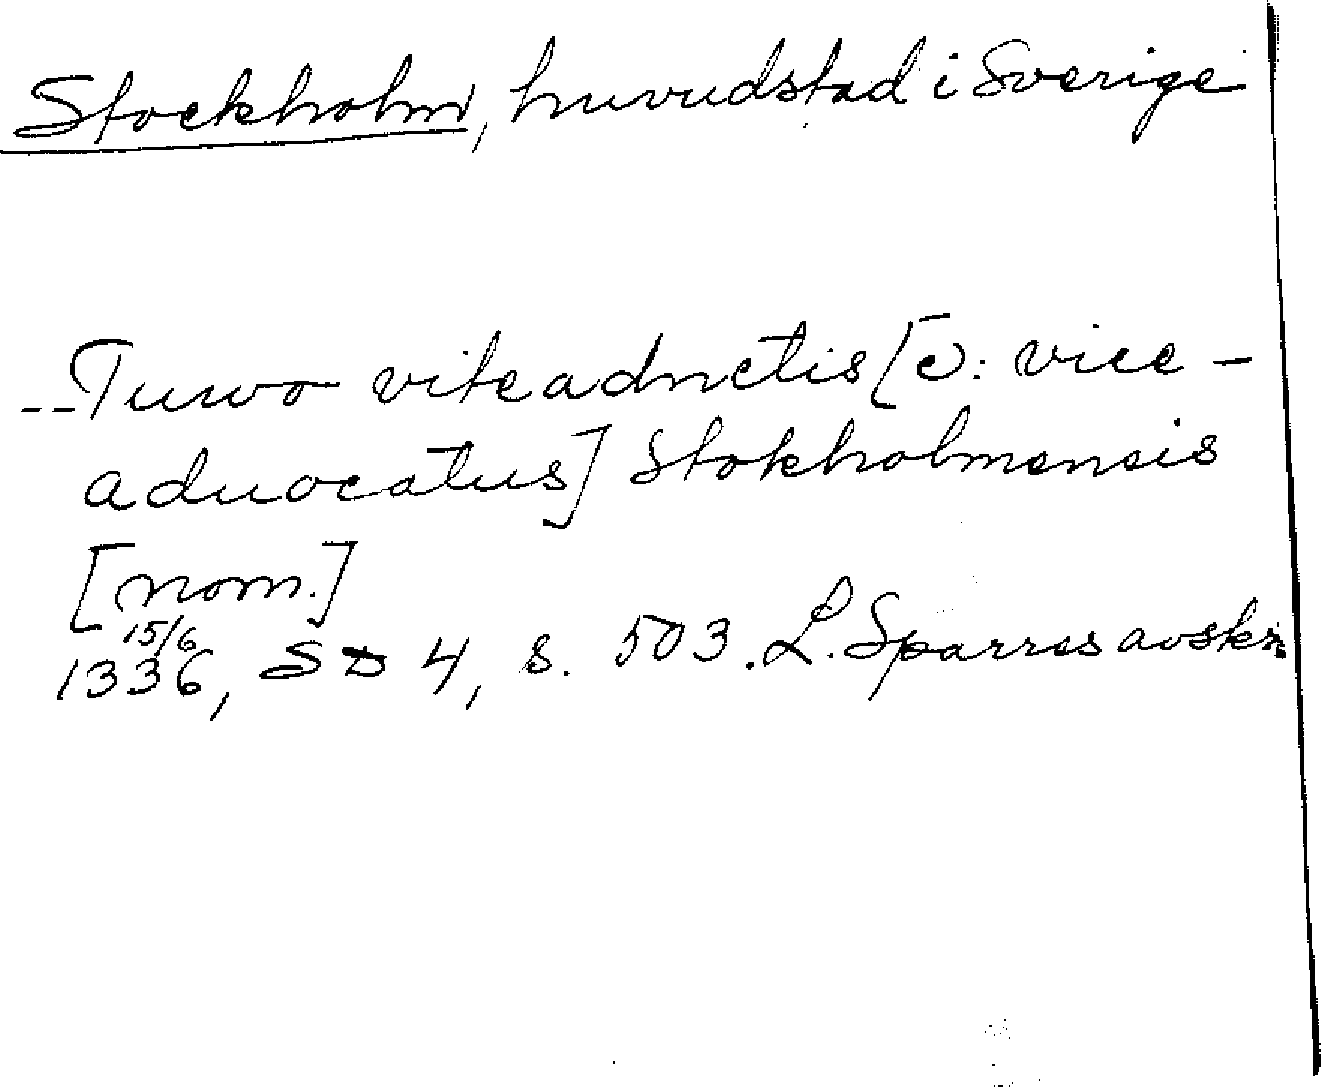 Stockholm, huvudstad i Sverige
--Tuwo viteadnctis [ɔ: vice-
aduocatus] Stokholmensis
[nom.]
15/6
1336, SD 4, s. 503. L. Sparres avskr.